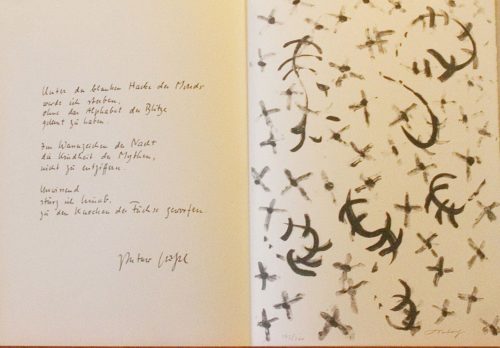 Unter der blanken Hacke des Monds
werde ich sterben,
ohne das Alphabet der Blitze
gelernt zu haben.
Im Wasserzeichen der Nacht
die Kindheit der Mythen,
nicht zu entziffern.
Unwissend
stürz ich hinab,
zu den Knochen der Füchse geworfen
Peter Huchel